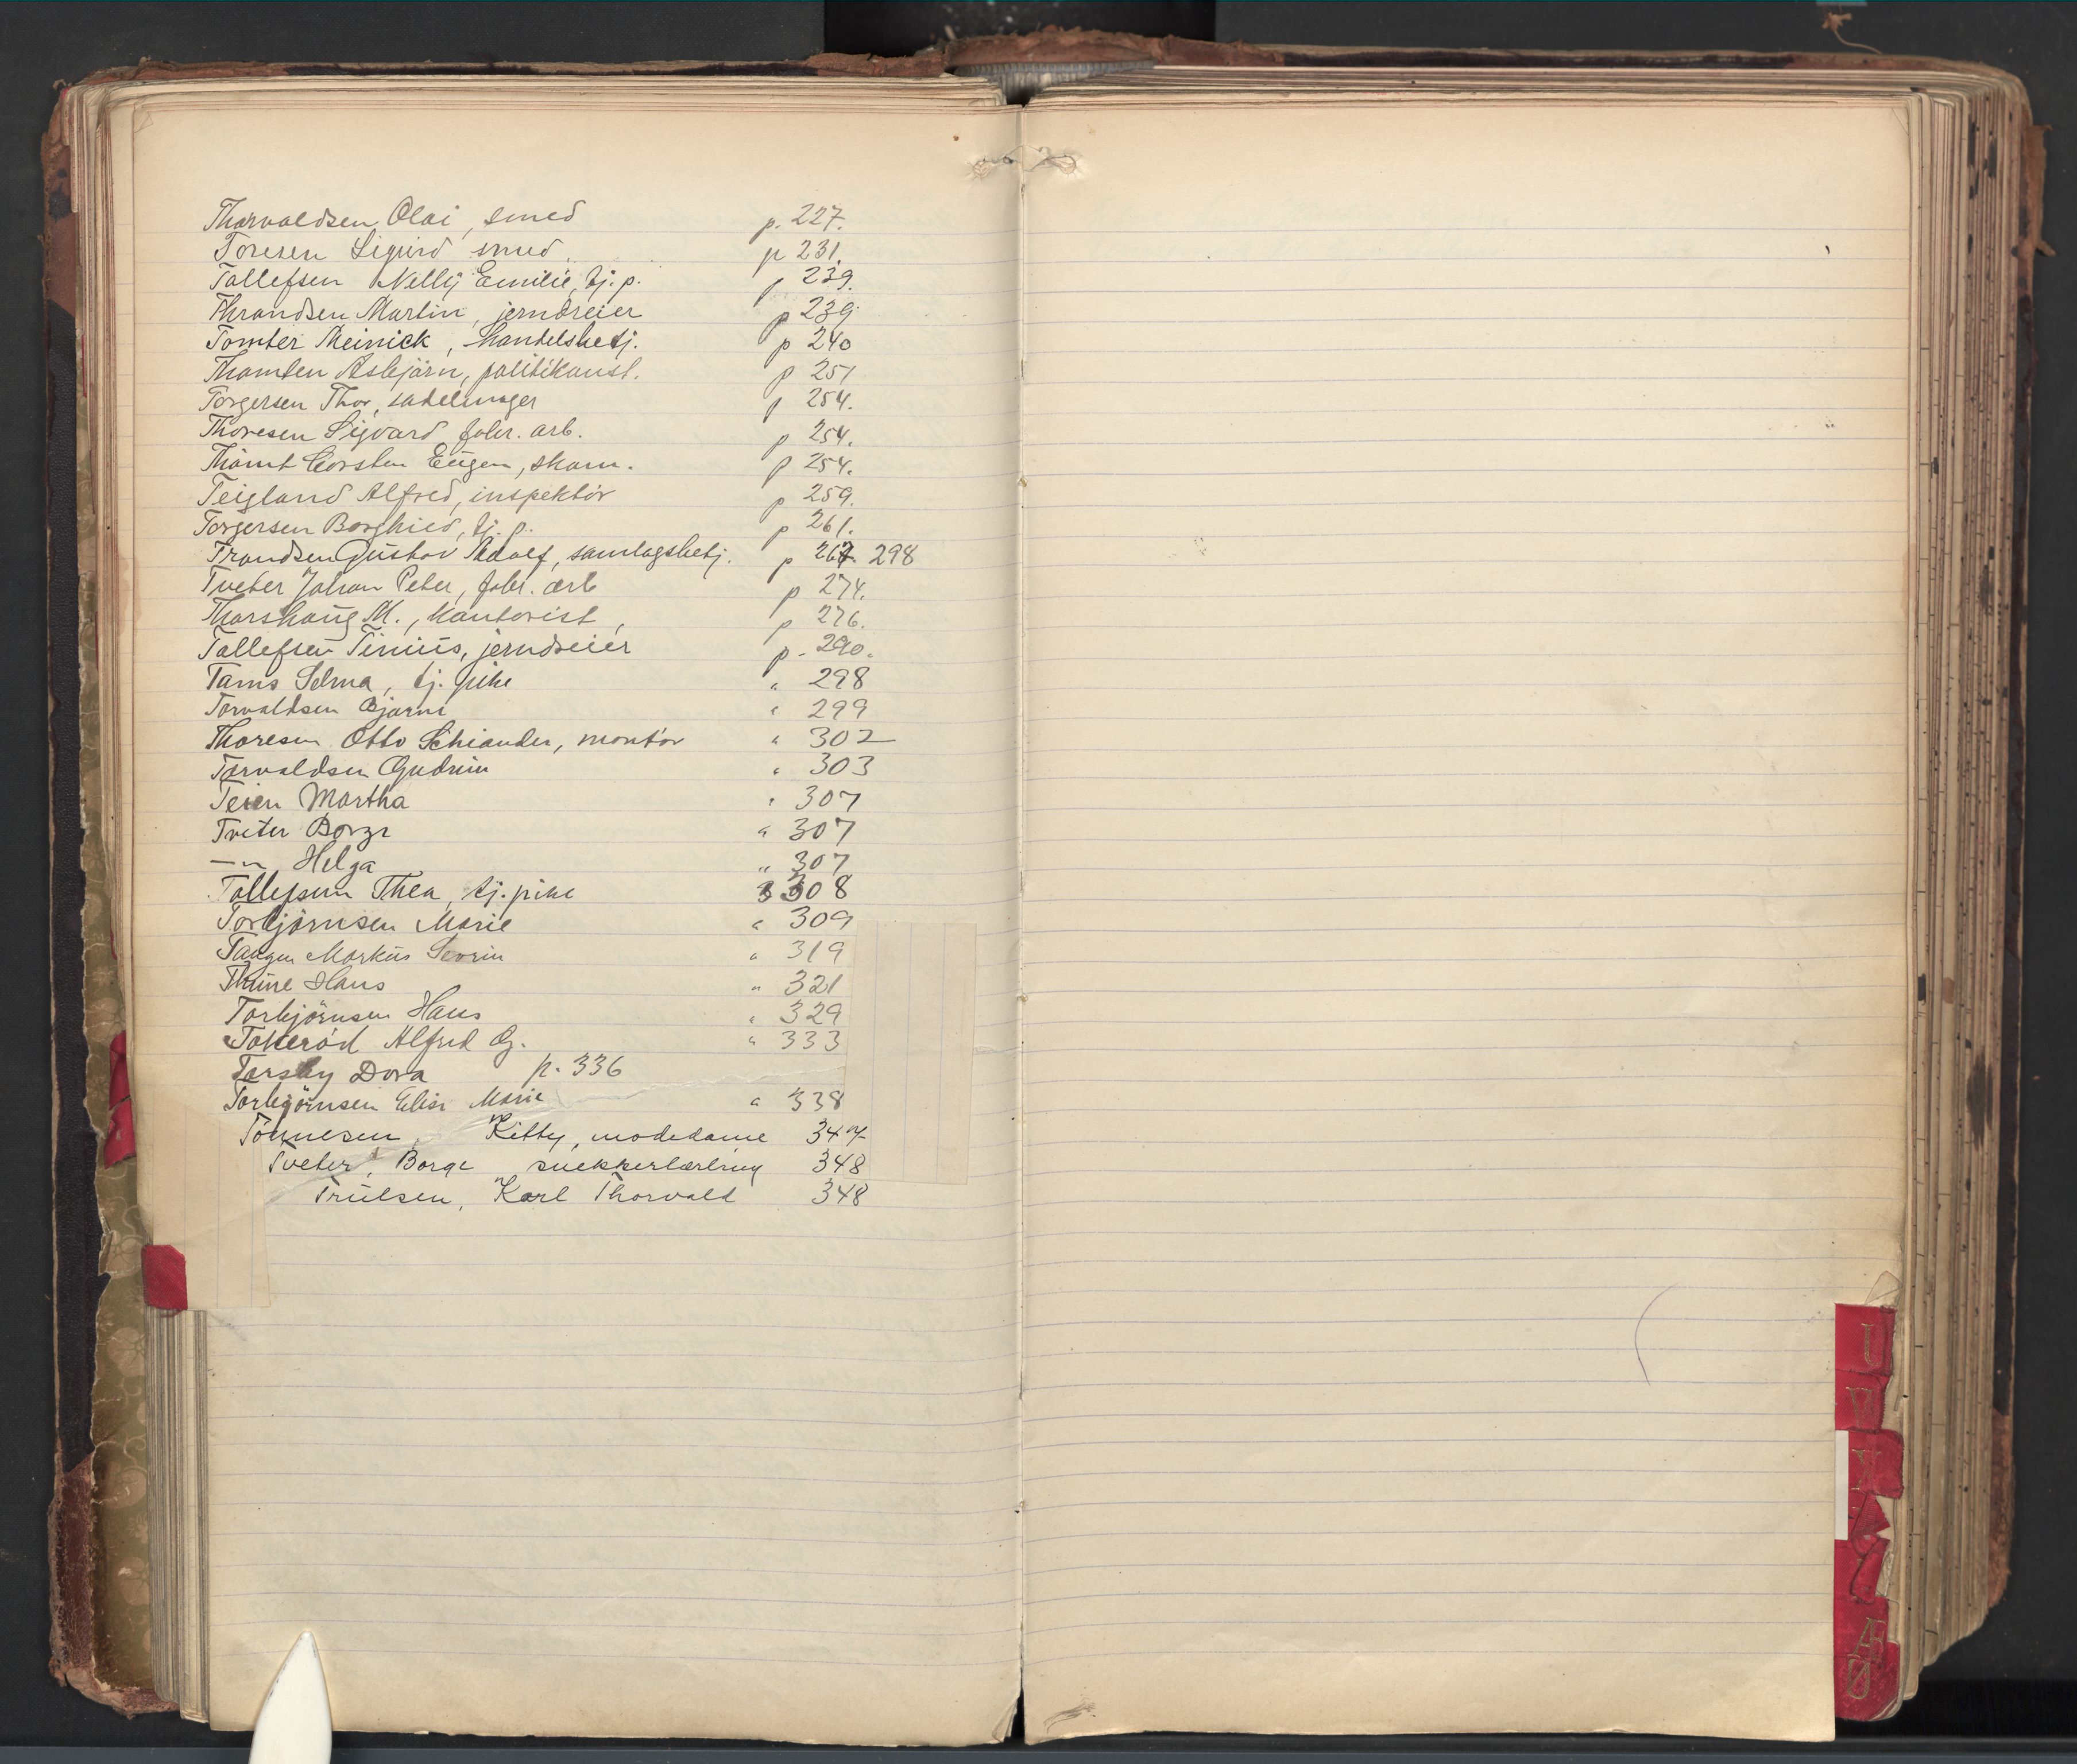 Thorvaldsen Olai, smed p. 227.
Toresen Sigurd smed. p 231.
Tollefsen Nelly Emilie, tj. p. p 239.
Thrandsen Martin, jerndreier p 239.
Tomter Meinick, handelsbetj. p 240
Thomten Asbjörn, politikonst. p 251
Torgersen Thor, sadelmager p 254.
Thoresen Sigvard fabr. arb. p 254.
Torsten Eugen, skom. p 254.
Teigland Alfred, inspektör p 259.
Torgersen Borghild, tj. p. p 261.
Trandsen Gustav Adolf, samlagsbetj. p 267. 298
Tveter Johan Peter, fabr. arb p 274.
Thorshaug M., kontorist, p 276.
Tollefsen Tinius, jerndreier p. 290.
Tams Selma, tj. pike " 298
Torvaldsen Bjarne " 299
Thoresen Otto Schiander, montör " 302
Torvaldsen Gudrun " 303
Teien Martha " 307
Tveter Borge " 307
—"— Helga " 307
Tollefsen Thea, tj. pike " 308
Torbjörnsen Marie " 309
Tangen Markus Severin " 319
Thune Hans " 321
Torbjörnsen Hans " 329
Tokeröd Alfred Og. " 333
Torsby Dora p. 336
Torbjörnsen Elise Marie " 338
Tönnesen, Kitty, modedame 347
Tveter, Borge snekkerlærling 348
Trulsen, Karl Thorvald 348
U
V
Æ
Ø